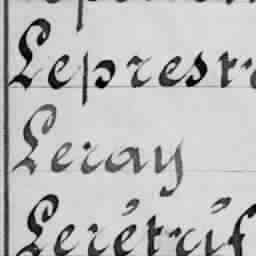 Leprestr
Leray
Lerétrif